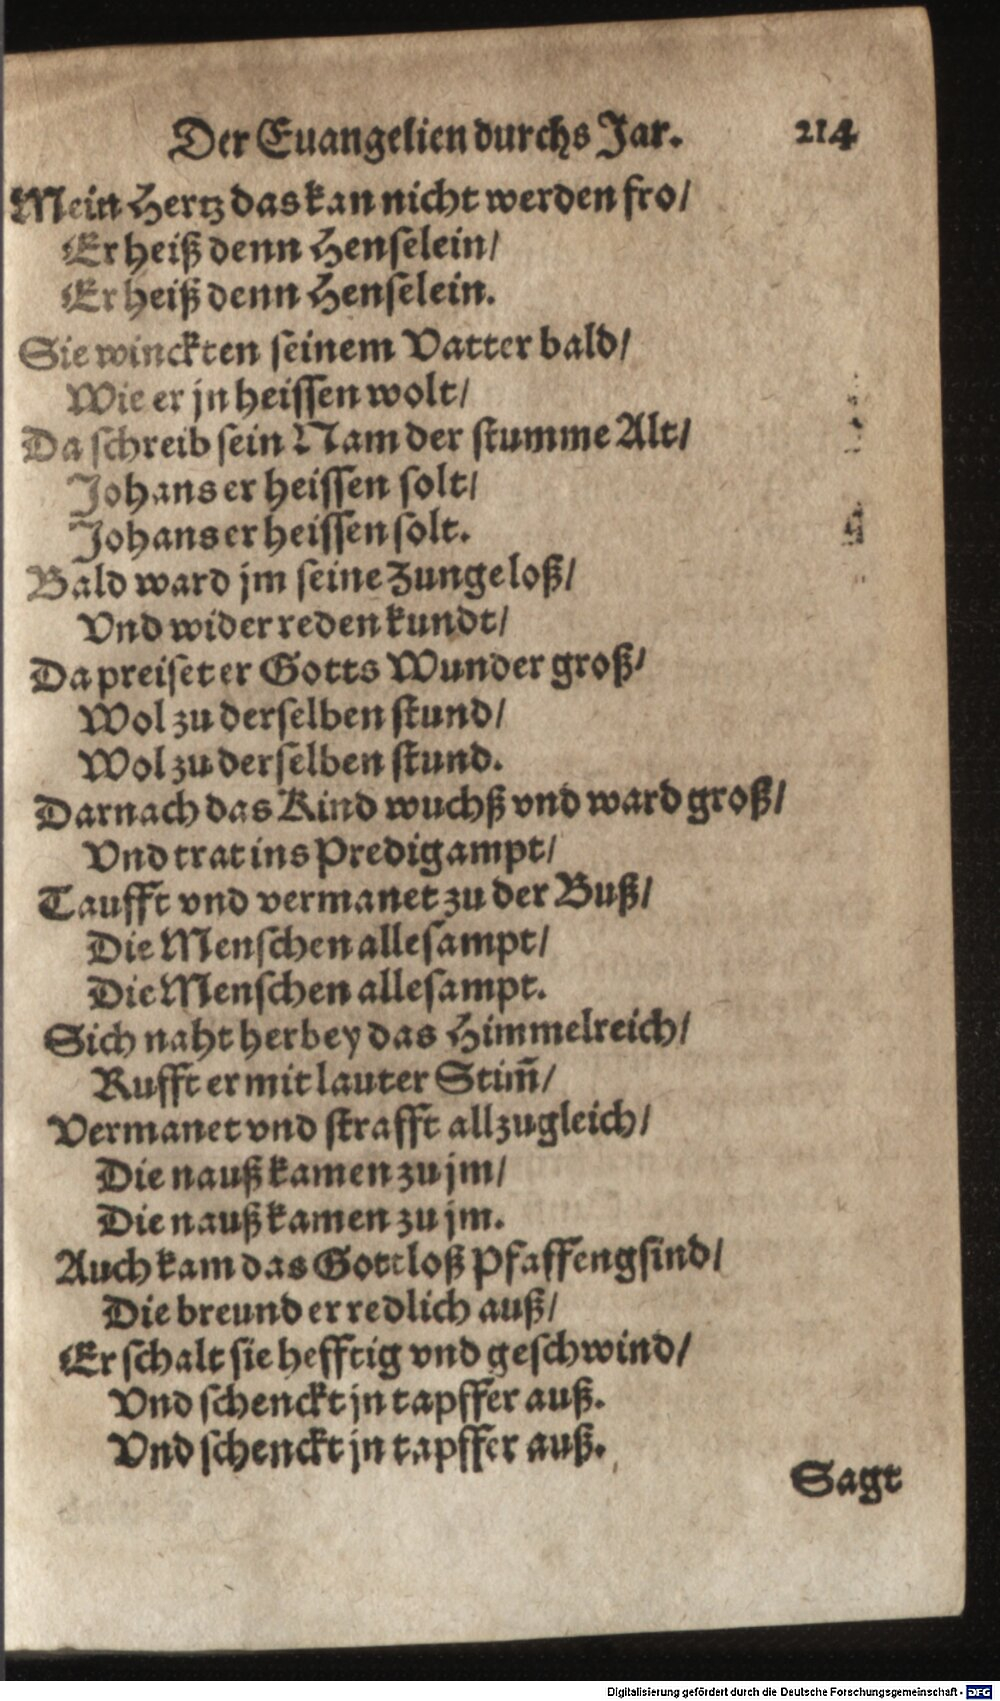 Der Euangelien durchs Jar. 214
Mein Hertz das kan nicht werden fro/
Er heiß denn Henselein/
Er heiß denn Henselein.
Sie winckten seinem Vatter bald/
Wie er jn heissen wolt/
Da schreib sein Nam der stumme Alt/
Johans er heissen solt/
Johans er heissen solt.
Bald ward jm seine Zunge loß/
Vnd wider reden kundt/
Da preiset er Gotts Wunder groß/
Wol zu derselben stund/
Wol zu derselben stund.
Darnach das Kind wuchß vnd ward groß/
Vnd trat ins Predigampt/
Taufft vnd vermanet zu der Buß/
Die Menschen allesampt/
Die Menschen allesampt.
Sich naht herbey das Himmelreich/
Rufft er mit lauter Stim̃/
Vermanet vnd strafft allzugleich/
Die nauß kamen zu jm/
Die nauß kamen zu jm.
Auch kam das Gottloß Pfaffengsind/
Die breund er redlich auß/
Er schalt sie hefftig vnd geschwind/
Vnd schenckt jn tapffer auß.
Vnd schenckt jn tapffer auß.
Sagt
Digitalisierung gefördert durch die Deutsche Forschungsgemeinschaft - DFG